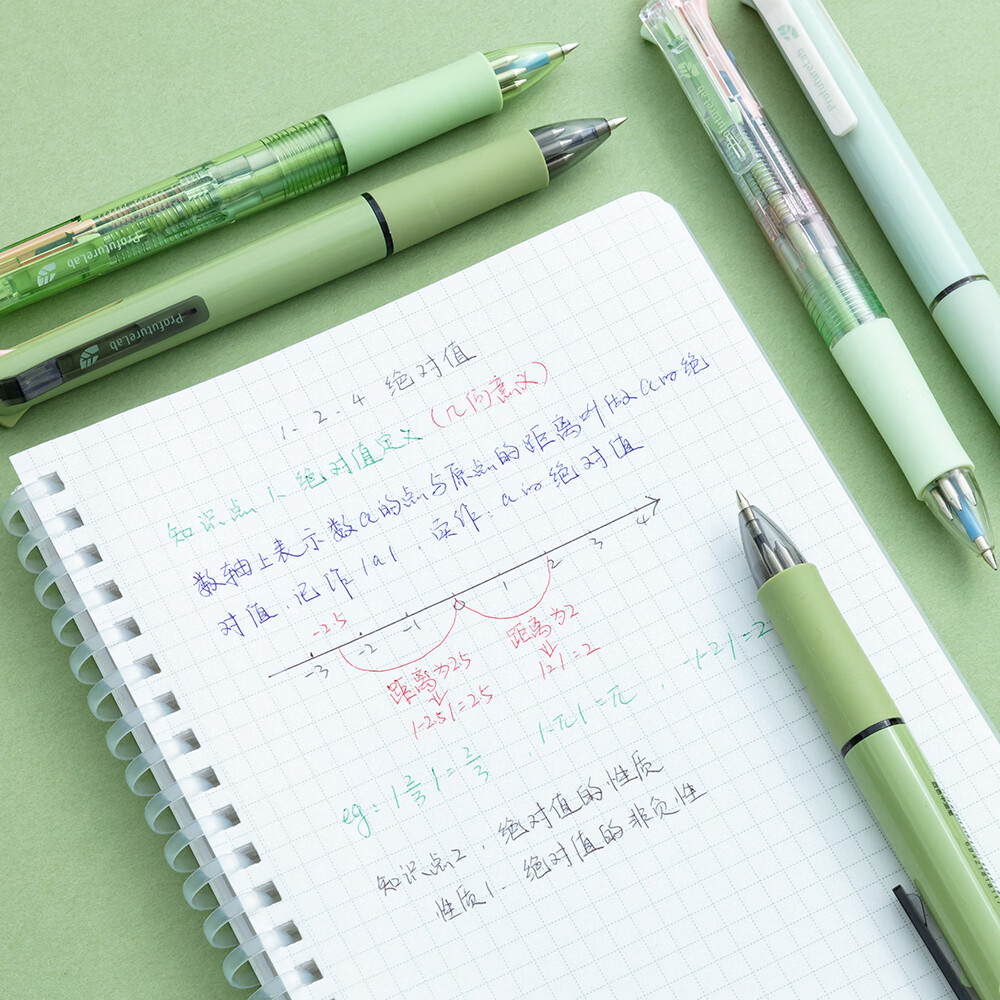 ProfutureLab
ProfutureLab
ProfutureLab
ProfutureLab
1-2-4 绝对值
知识点1、绝对值定义 (几何意义)
数轴上表示数a的点与原点的距离叫做a的绝
对值.记作|a|.读作:a的绝对值
-3 -2.5 -2 -1 0 1 2 3 4
距离为2.5 距离为2
|-2.5|=2.5 |2|=2
eg:|2/3|=2/3 . |-π|=π . -|-2|=2
知识点2.绝对值的性质
性质1.绝对值的非负性